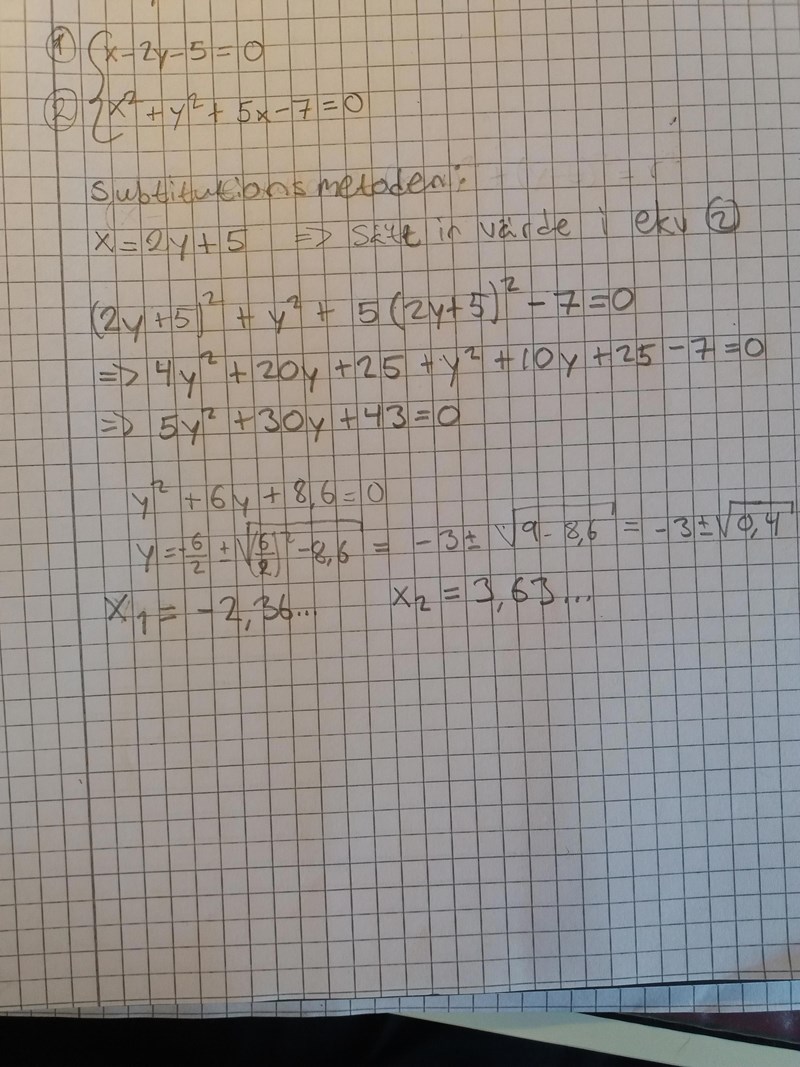 ① { x - 2y - 5 = 0
② { x² + y² + 5x - 7 = 0
Substitutionsmetoden:
x = 2y + 5 => Sätt in värde i ekv ②
(2y + 5)² + y² + 5(2y + 5)² - 7 = 0
=> 4y² + 20y + 25 + y² + 10y + 25 - 7 = 0
=> 5y² + 30y + 43 = 0
y² + 6y + 8,6 = 0
y = -6/2 ± √((6/2)² - 8,6) = -3 ± √(9 - 8,6) = -3 ± √(0,4)
x₁ = -2,36... x₂ = 3,63...